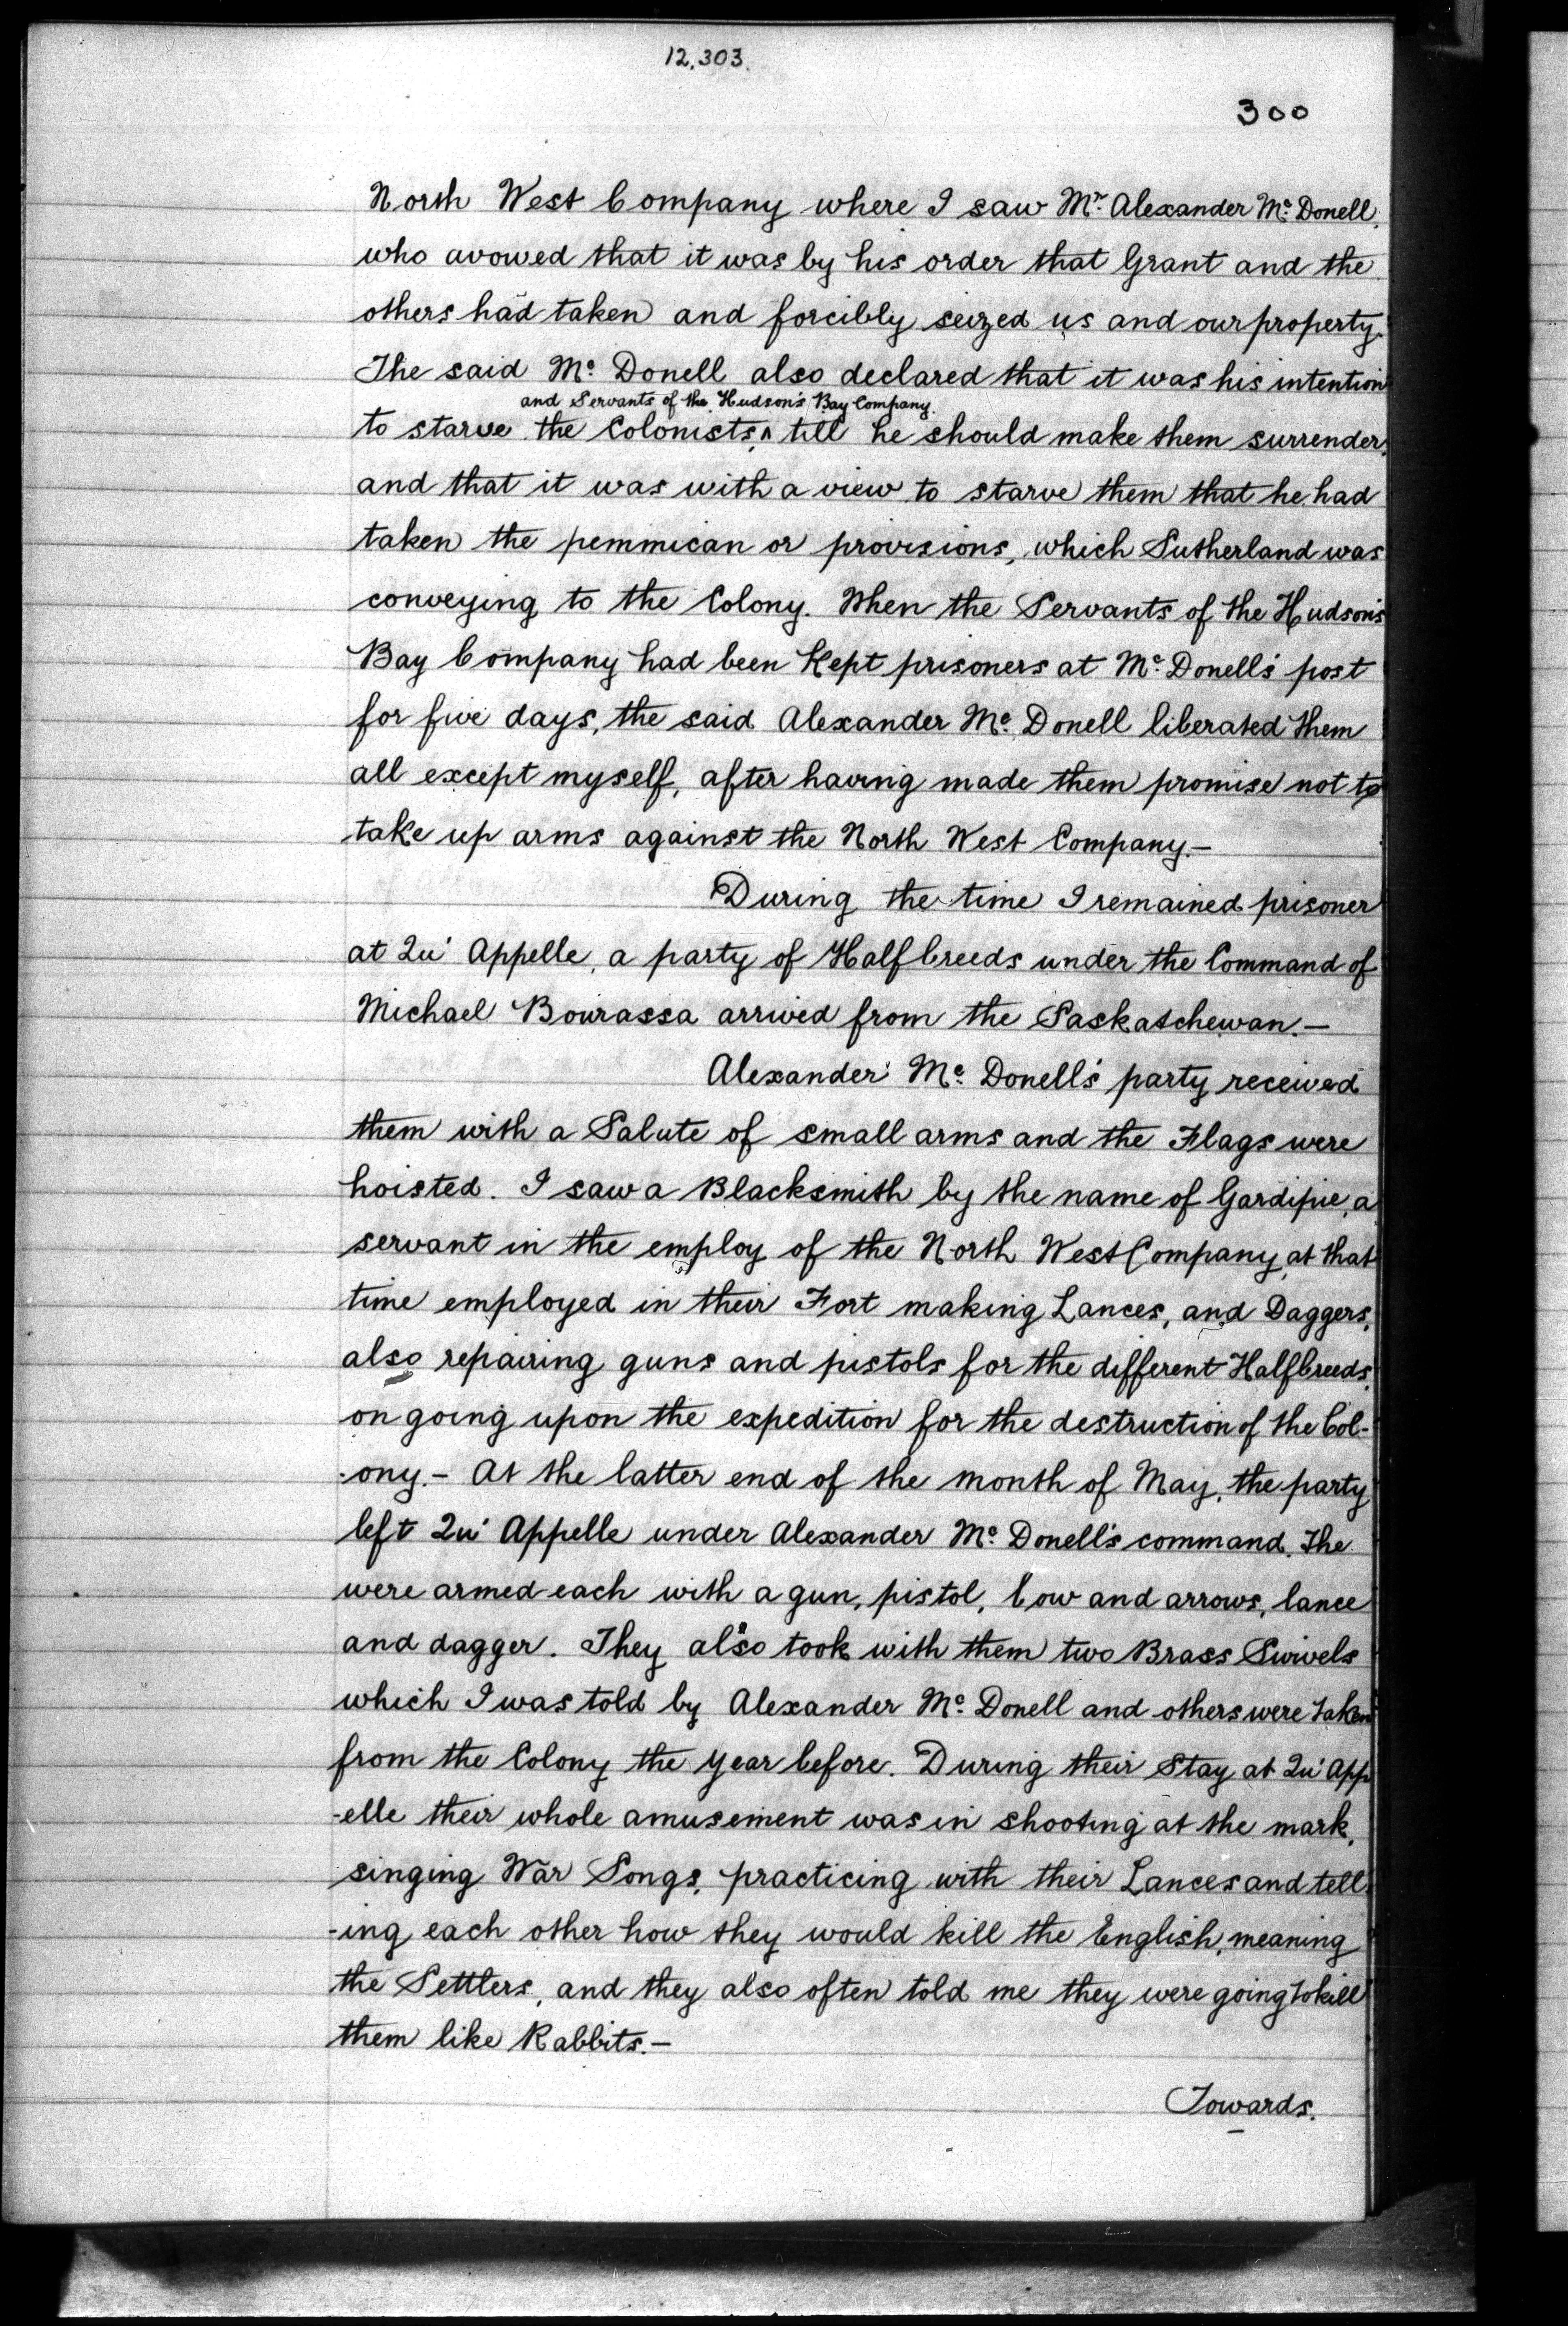 12,303.
300
North West Company where I saw Mr. Alexander Mc. Donell,
who avowed that it was by his order that Grant and the
others had taken and forcibly seized us and our property.
The said Mc. Donell also declared that it was his intention
and Servants of the Hudson's Bay Company.
to starve the Colonists, ^ till he should make them surrender,
and that it was with a view to starve them that he had
taken the pemmican or provisions, which Sutherland was
conveying to the Colony. When the Servants of the Hudson's
Bay Company had been Kept prisoners at Mc. Donell's post
for five days, the said Alexander Mc. Donell liberated them
all except myself, after having made them promise not to
take up arms against the North West Company.—
During the time I remained prisoner
at Qu' Appelle, a party of Halfbreeds under the Command of
Michael Bourassa arrived from the Saskatchewan.—
Alexander Mc. Donell's party received
them with a Salute of small arms and the Flags were
hoisted. I saw a Blacksmith by the name of Gardipie, a
servant in the employ of the North West Company, at that
time employed in their Fort making Lances, and Daggers,
also repairing guns and pistols for the different Halfbreeds,
on going upon the expedition for the destruction of the Col-
-ony.— At the latter end of the month of May, the party
left Qu' Appelle under Alexander Mc. Donell's command. The
were armed each with a gun, pistol, bow and arrows, lance
and dagger. They also took with them two Brass Swivels
which I was told by Alexander Mc. Donell and others were taken
from the Colony the year before. During their Stay at Qu' App
-elle their whole amusement was in shooting at the mark,
singing War Songs, practicing with their Lances and tell
-ing each other how they would kill the English, meaning
the Settlers, and they also often told me they were going to kill
them like Rabbits.—
Towards.